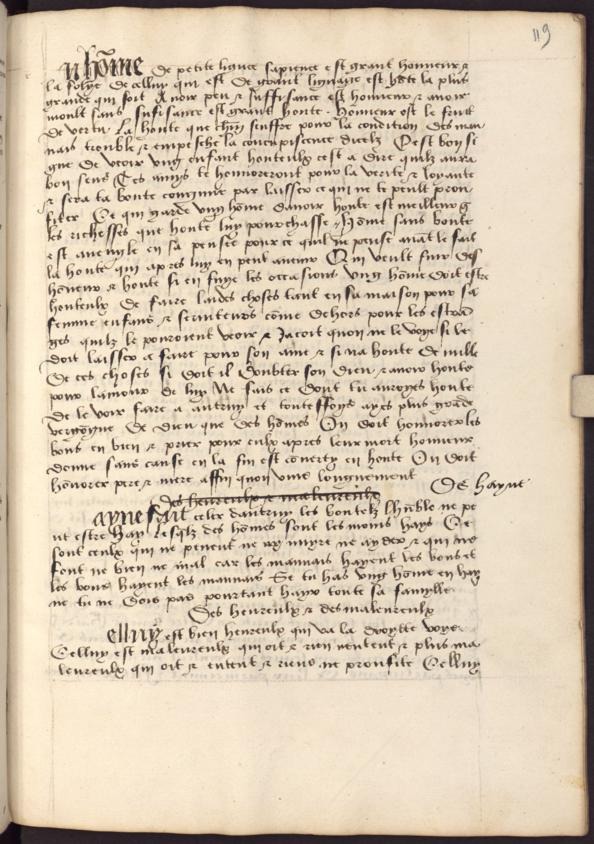 119
n hõme de petite lignee sapience est grant honneur et
la folye de celluy qui est de grant lignaige est honte la plus
grande qui soit Avoir peu et suffisance est honneur et avoir
moult sans suffisance est grant honte. honneur est le fruit
de vertu. La honte que chũn seuffre pour la condition des mau
nais trouble et empesche la concupiscence dicelx Cest bon si
gne de veoir ung enfant honteulx cest a dire quilz aura
bon sens Tes amys te honnoreront pour la verite et loyaute
et sera ta bonte congnue par laisser ce qui ne te peult prou
fiter Ce qui garde ung hõme davoir honte est meilleur q̃
les richesses que honte luy pourchasse. hõme sans honte
est aveugle en sa pensee pour ce quil ne pense avãt le fait
la honte qui apres luy en peut avenir Qui veult fuir des
hõneur et honte si en fuye les occasions ung hõme doit estre
honteulx de faire laides choses tant en sa maison pour sa
femme enfans et serviteurs cõme dehors pour les estrã
ges quilz le pourroient veoir et Jacoit quon ne le voye si le
doit laisser a faire pour son ame et si na honte de nulle
de ces choses si doit il doubter son dieu et avoir honte
pour lamour de luy Ne fais ce dont tu auroyes honte
de le voir faire a autruy et touteffoys ayes plus grãde
vergongne de dieu que des hõmes On doit honnorer les
bons en bien et prier pour eulx apres leur mort honneur
donne sans cause en la fin est cõverty en honte On doit
hõnorer pere et mere affin quon vive longuement
De hayne
des heureulx et maleureulx
ayne fait celer dautruy les bontez lhũble ne pe
ut estre hay lesqlz des hõmes sont les moins hays Ce
sont ceulx qui ne peuvent ne nuyre ne ayder et qui ne
font ne bien ne mal car les mauvais hayent les bons et
les bons hayent les mauvais Se tu has ung hõme en hay
ne tu ne dois pas pourtant hayr toute sa famylle
Des heureulx et des maleureulx
elluy est bien heureulx qui va la droytte voye.
Celluy est maleureulx qui oit et rien nentent et plus ma
leureulx qui oit et entent et riens ne proufite Celluy